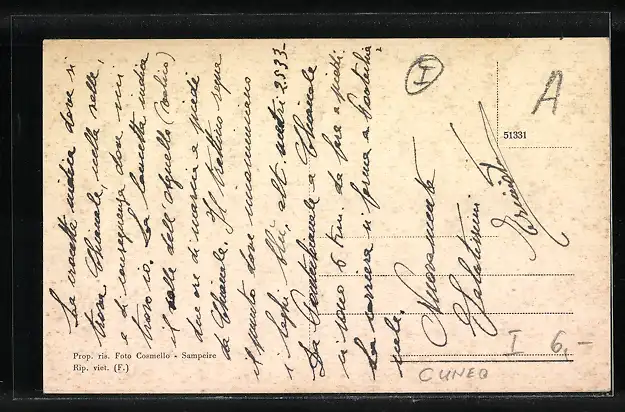 La crocetta indica dove si
trova Chianale, nella valle,
e di conseguenza dove mi
trovo io. La crocetta indica
il colle dell'Agnello (valico)
due ore di marcia a piedi
da Chianale. Il trattino segna
il punto dove incominciano
i laghi Blù, alt. metri 2533-
Da Pontechianale a Chianale
ci sono 6 km. da fare a piedi.
La corriera si ferma a Pontechia-
nale.
Nuovamente
Salutissimi
I
A
51331
Prop. ris. Foto Cosmello - Sampeire
Rip. viet. (F.)
I 6,-
CUNEO